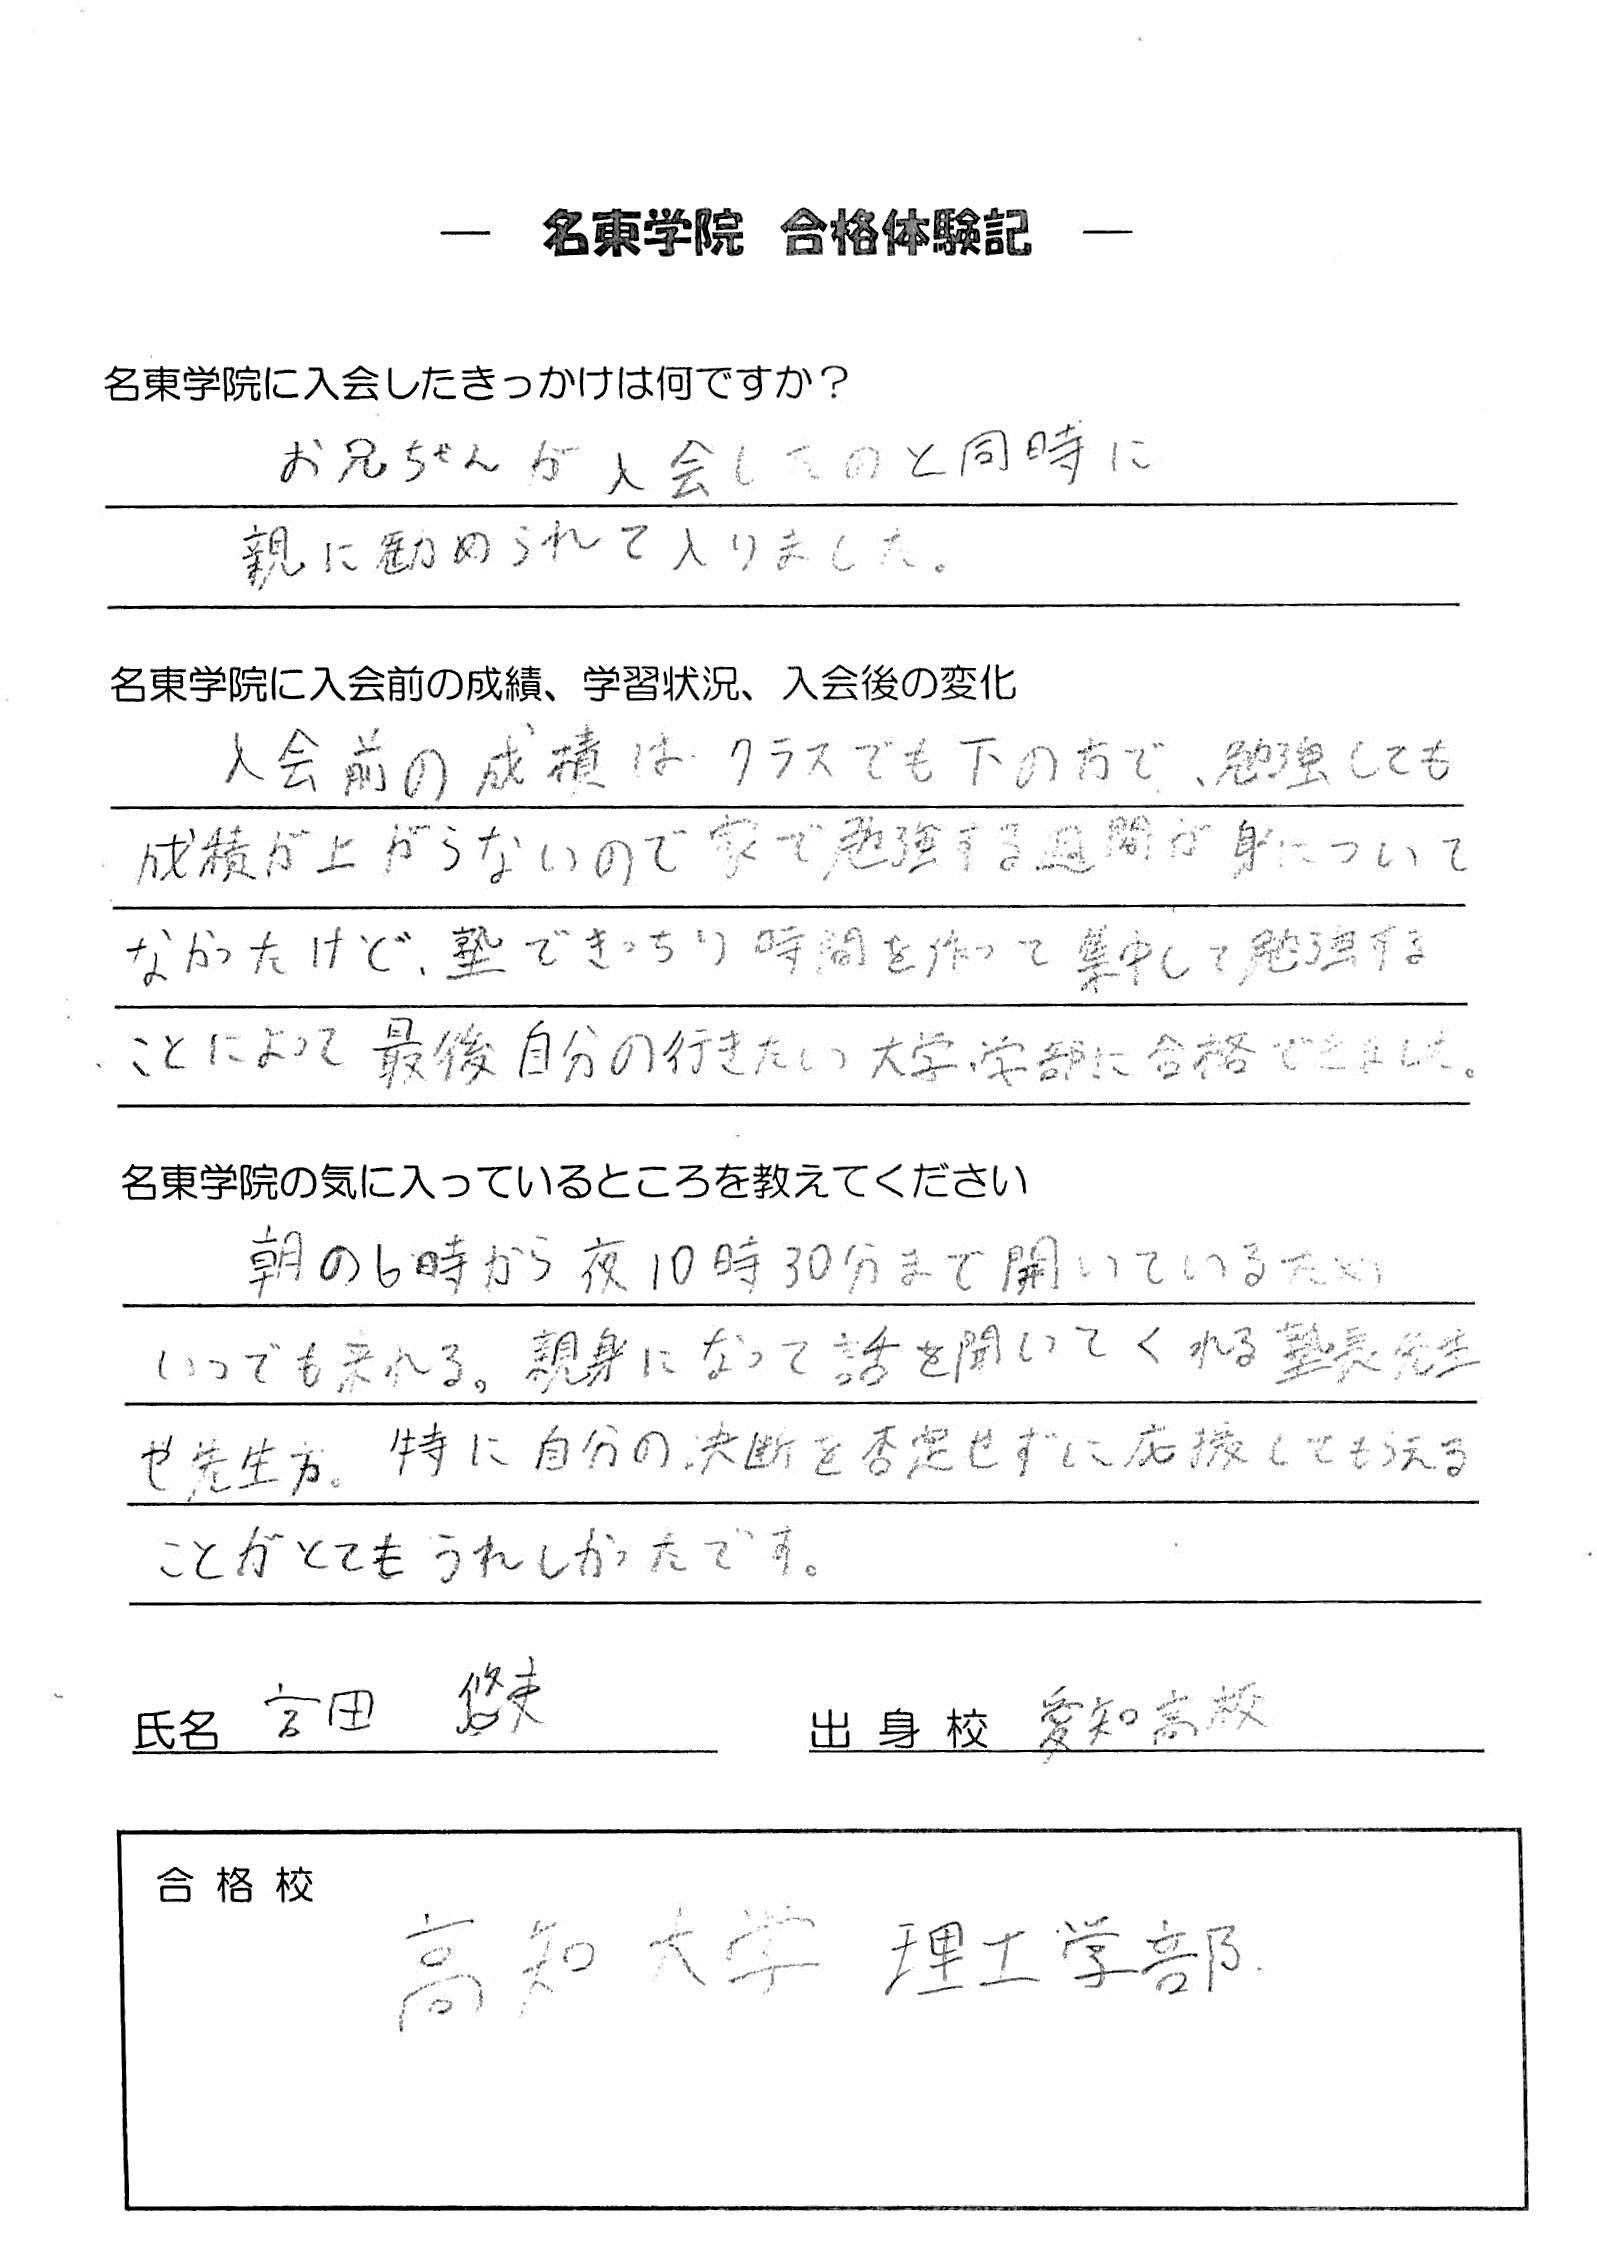 ― 名東学院 合格体験記 ―
名東学院に入会したきっかけは何ですか？
お兄ちゃんが入会したのと同時に
親に勧められて入りました。
名東学院に入会前の成績、学習状況、入会後の変化
入会前の成績はクラスでも下の方で、勉強しても
成績が上がらないので家で勉強する週間が身について
なかったけど、塾できっちり時間を作って集中して勉強する
ことによって最後自分の行きたい大学、学部に合格できました。
名東学院の気に入っているところを教えてください
朝の6時から夜10時30分まで開いているため
いつでも来れる。親身になって話を聞いてくれる塾長先生
や先生方。特に自分の決断を否定せずに応援してもらえる
ことがとてもうれしかったです。
氏名 宮田 悠吏 出身校 愛知高校
合格校
高知大学 理工学部